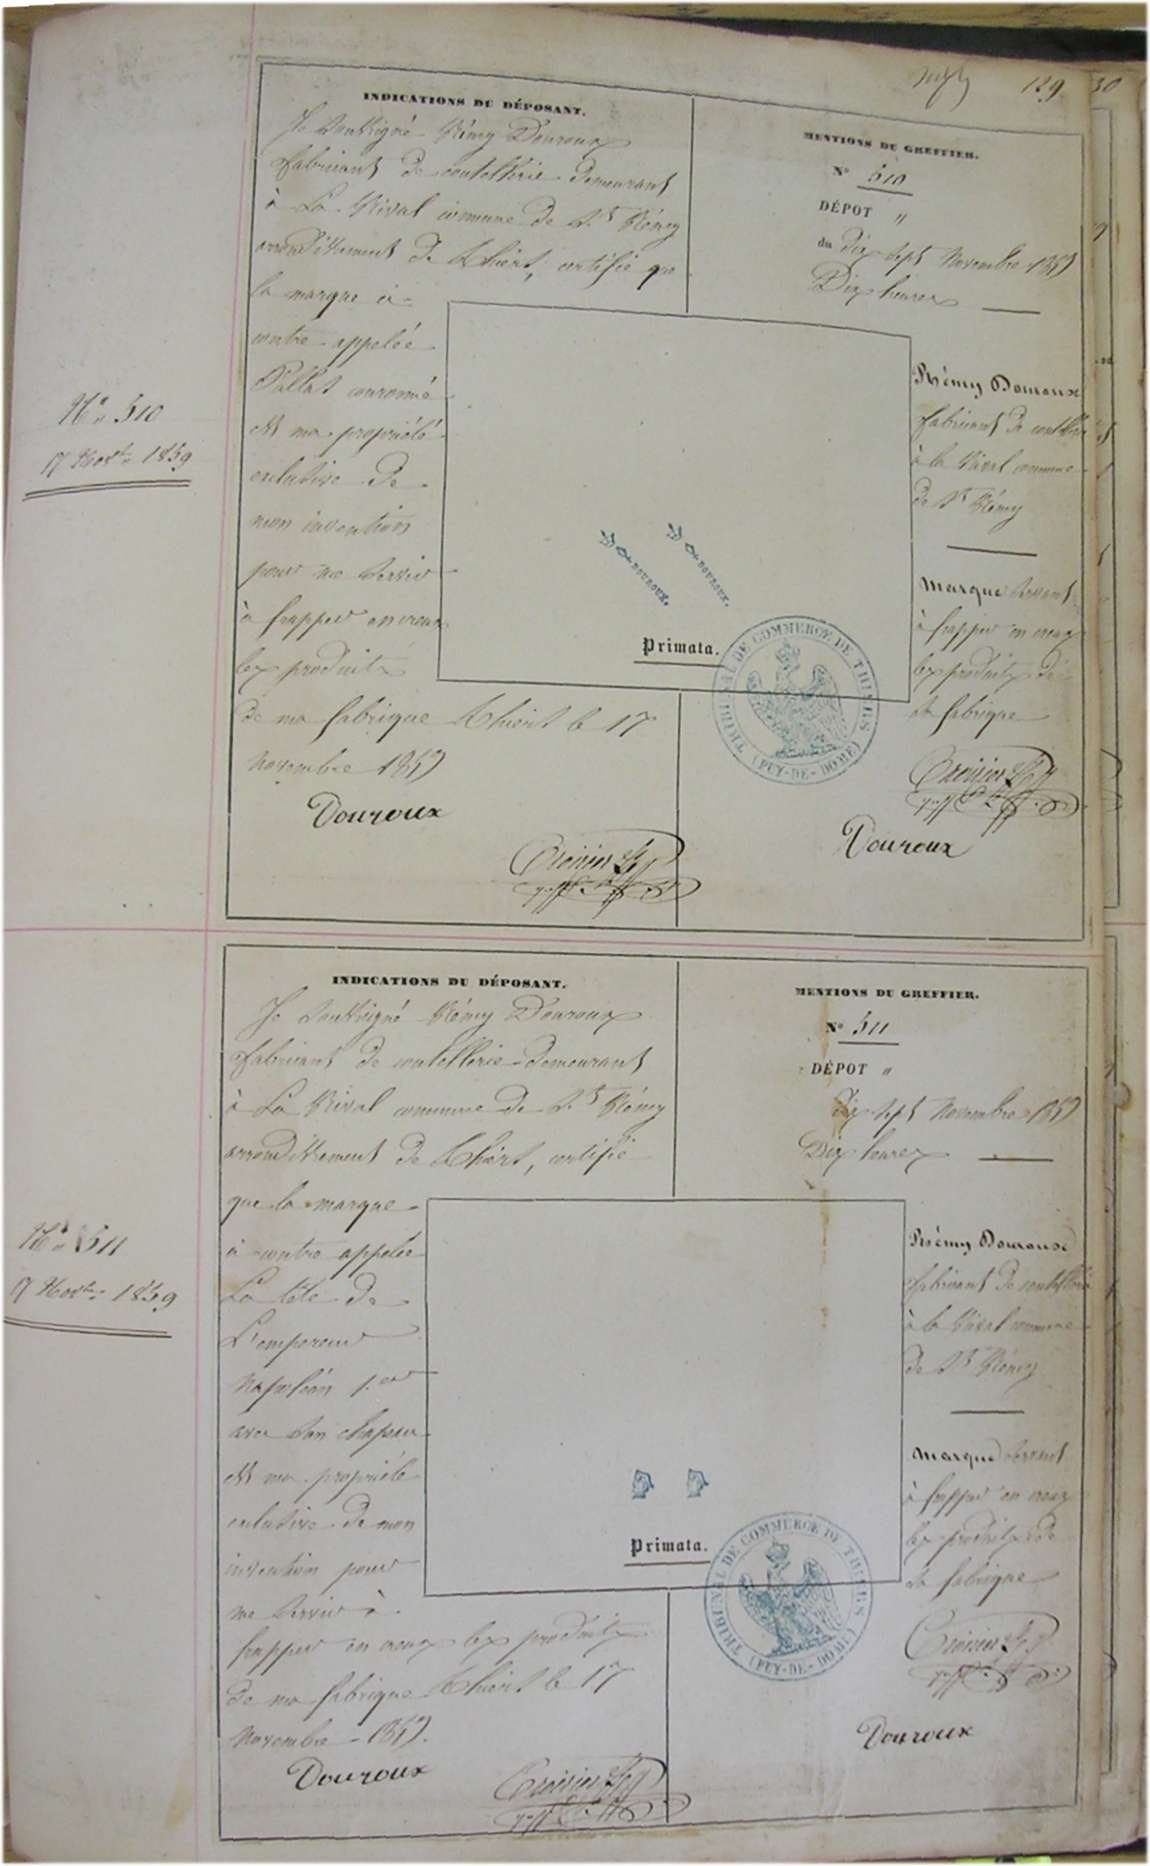 129 30
INDICATIONS DU DÉPOSANT.
Je soussigné Rémy Douroux
fabricant de coutellerie demeurant
à La Rival commune de St Rémy
arrondissement de Thiers, certifie que
la marque ci-
contre appelée
couronné
est ma propriété
exclusive de
mon invention
pour me servir
à frapper en creux
les produits
de ma fabrique Thiers le 17
novembre 1859
Douroux
Croizier
MENTIONS DU GREFFIER.
N° 510
DÉPOT "
du dix sept novembre 1859
Dix heures
Rémy Douroux
fabricant de coutellerie
à la Rival commune
de St Rémy
marque servant
à frapper en creux
les produits de
sa fabrique
Croizier
Douroux
DOUROUX. DOUROUX.
Primata.
TRIBUNAL DE COMMERCE DE THIERS
(PUY-DE-DOME)
No 510
17 Novbre 1859
INDICATIONS DU DÉPOSANT.
Je soussigné Rémy Douroux
fabricant de coutellerie demeurant
à La Rival commune de St Rémy
arrondissement de Thiers, certifie
que la marque
ci-contre appelée
La tête de
L'empereur
Napoléon 1.er
avec son chapeau
est ma propriété
exclusive de mon
invention pour
me servir à
frapper en creux les produits
de ma fabrique Thiers le 17
novembre 1859.
Douroux
Croizier
MENTIONS DU GREFFIER.
N° 511
DÉPOT "
dix sept novembre 1859
Dix heures
Rémy Douroux
fabricant de coutellerie
à la Rival commune
de St Rémy
marque servant
à frapper en creux
les produits de
sa fabrique
Croizier
Douroux
Primata.
TRIBUNAL DE COMMERCE DE THIERS
(PUY-DE-DOME)
No 511
17 Novbre 1859